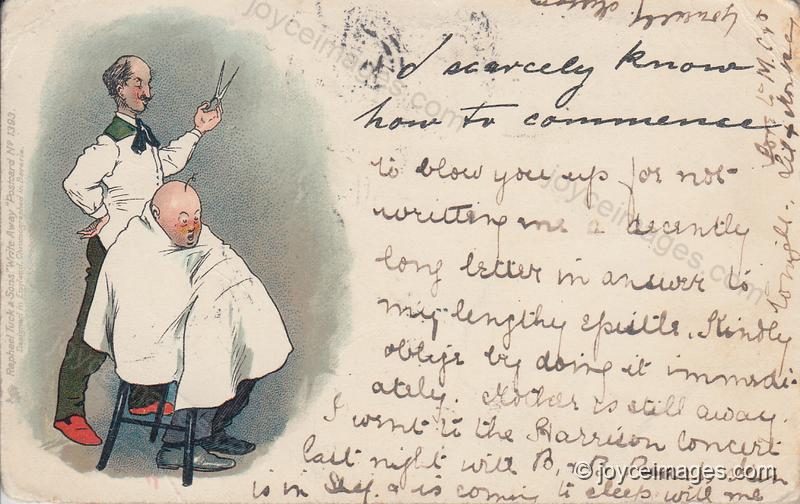 I scarcely know
how to commence
to blow you up for not
writing me a decently
long letter in answer to
my lengthy epistle. Kindly
oblige by doing it immedi-
ately. Mother is still away.
I went to the Harrison concert
last night with B, & B.
is in & is coming to sleep with me
tonight.
Raphael Tuck & Sons' "Write Away" Postcard No 1393.
Designed in England. Chromographed in Bavaria.
joyceimages.com
joyceimages.com
joyceimages.com
joyceimages.com
© joyceimages.com